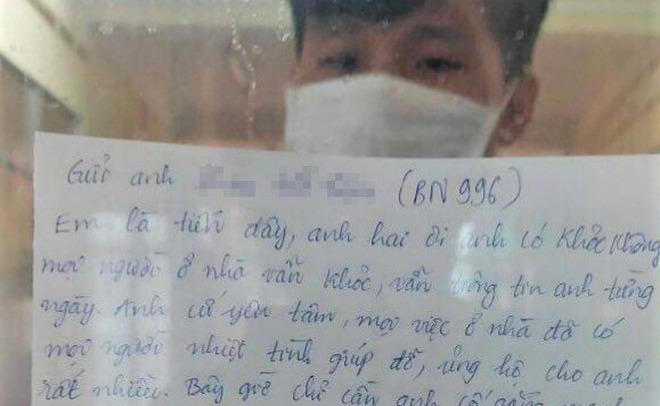 Gửi anh (BN 996)
Em là tiến đây, anh hai ơi anh có khỏe không
mọi người ở nhà vẫn khỏe, vẫn trông tin anh từng
ngày. Anh cứ yên tâm, mọi việc ở nhà đã có
mọi người nhiệt tình giúp đỡ, ủng hộ cho anh
rất nhiều. Bây giờ chỉ cần anh cố gắng